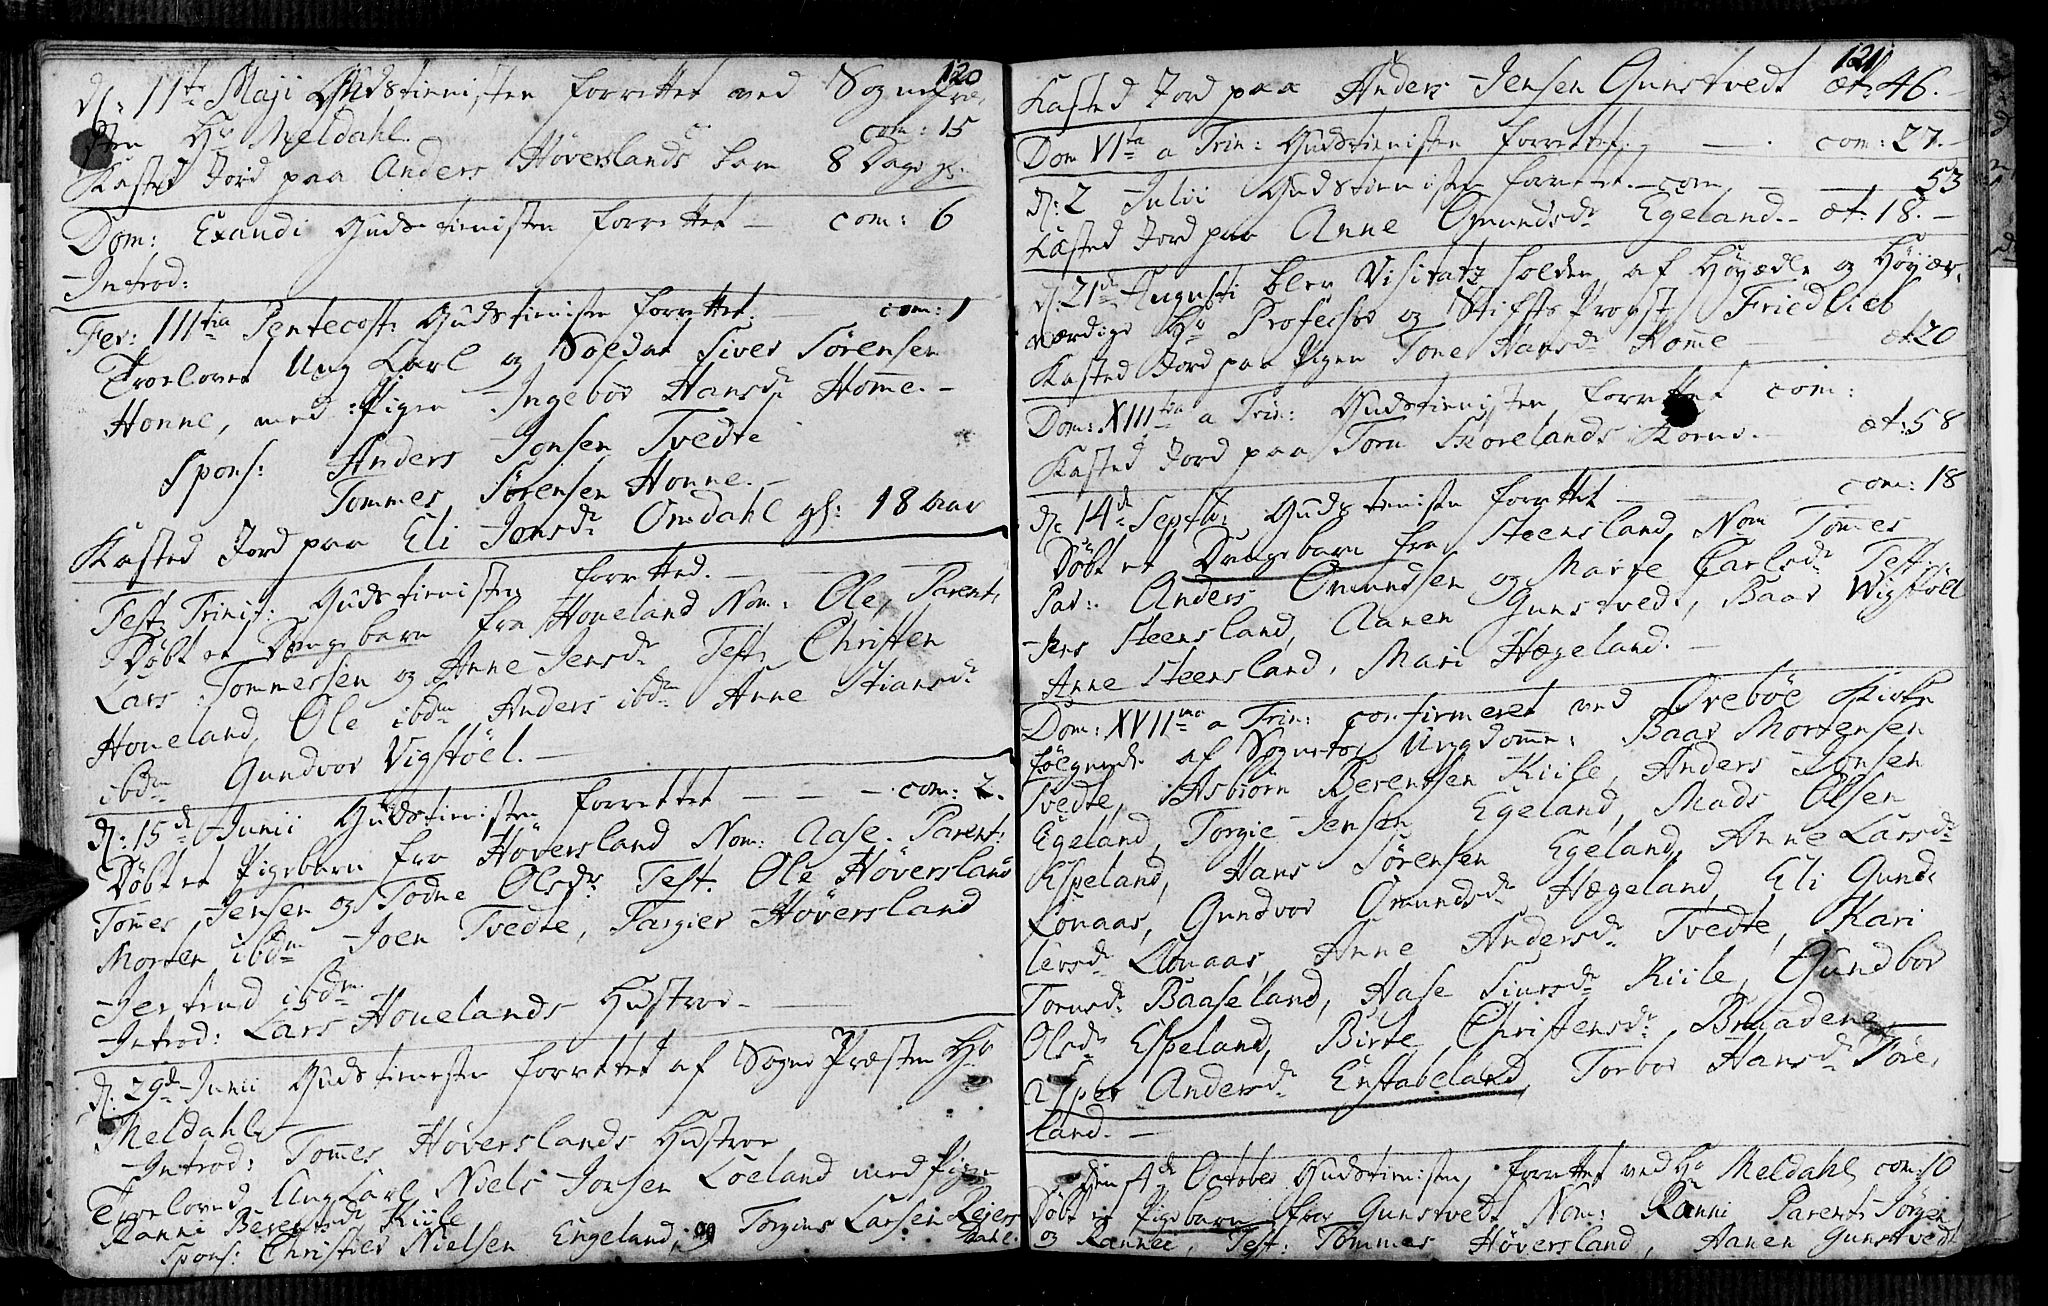 120
d: 11te Maji Gudstienisten forrettet ved Sogne Præ-
sten Hr Meldahl. com: 15
Kasted Jord paa Anders Höverslands barn 8 Dage gl:
Dom: Exaudi Gudstienisten forrettet — com: 6
Introd:
Fer: IIItia Pentecost: Gudstienisten forrettet. — com: 1
Troelovet Ung Karl og Soldat Siver Sörensen
Honne, med Pigen Ingebor Hansdr Homme. —
Spons: Anders Jonsen Tvedte
Tommes Sörensen Honne. —
Kasted Jord paa Eli Jensdr Omdahl gl: 18 aar
Fest: Trinit: Gudstienisten forretted. —
Döbt et Drengebarn fra Houeland Nom: Ole, Parent:
Lars Tommessen og Anne Jensdr Test: Christen
Houeland, Ole ibdm Anders ibdm Anne Stiansdr
ibdm Gundvor Vigstöel. —
d: 15de Junii Gudstienisten forrettet — — — com: 2.
Döbt et Pigebarn fra Höversland Nom: Aase. Parent:
Tomes Jensen og Todne Olsdr Test. Ole Höversland
Morten ibdm Joen Tvedte, Targier Höversland
Jertrud ibdm.
Introd: Lars Houelands Hustroe —
d: 29de Junii Gudstienesten forrettet af Sogne Præsten Hr
Meldahl. —
Introd: Tomes Höverslands Hustroe
Troeloved Ung Karl Niels Jonsen Loeland med Pigen
Ranni Berentsdr Kiile
Spons: Christen Nielsen Engeland, og Torgius Larsen Leiers
Dahl.
121
Kasted Jord paa Anders Jensen Gunstvedt æt: 46. —
Dom VIta a Trin: Gudstienisten forrettet. — com: 27. —
d: 2 Julii Gudstienisten forrettet. — com — — 53
Kasted Jord paa Anne Omundsdr Egeland. — æt. 18. —
d: 21de Augusti blev Visitatz holden af Höyædle og Höyær-
værdige Hr Professor og Stifts Provst Friedlieb
Kasted Jord paa Pigen Tone Hansdr Homme æt 20
Dom: XIIItia a Trin: Gudstienisten forrettet com:
Kasted Jord paa Torn Skorelands Kone. — æt: 58
d: 14de Septbr: Gudstienisten forrettet — com: 18
Döbt et Drengebarn fra Steensland, Nom Tomes
Par: Anders Omundsen og Marte Carlsdr Test:
Jens Steensland, Aanen Gunstvedt, Baar Wigstöel
Anne Steensland, Mari Hægeland. —
Dom: XVIIma a Trin: confirmeret ved Öveböe Kirke
fölgende af Sognetz Ungdomme: Baar Mortensen
Tvedte, Asbiörn Berentsen Kiile, Anders Jonsen
Egeland, Torgie Jensen Egeland, Mads Olsen
Espeland, Hans Sörensen Egeland, Anne Larsdr
Lonaas, Gundvor Omundsdr Hægeland, Eli Gund-
lersdr Lonaas, Anne Andersdr Tvedte, Kari
Tornsdr Baaseland, Aase Siursdr Kiile, Gundbor
Olsdr Espeland, Birte Christensdr Braadene,
Asper Andersdr Enstabeland, Torbor Hansdr Töre-
land. —
den 4de October Gudstienisten forrettet ved Hr Meldahl com: 10
Döbt et Pigebarn fra Gunstvedt Nom: Ranni Parent: Jörgen
og Rannei, Test: Tommes Höversland, Aanen Gunstvedt